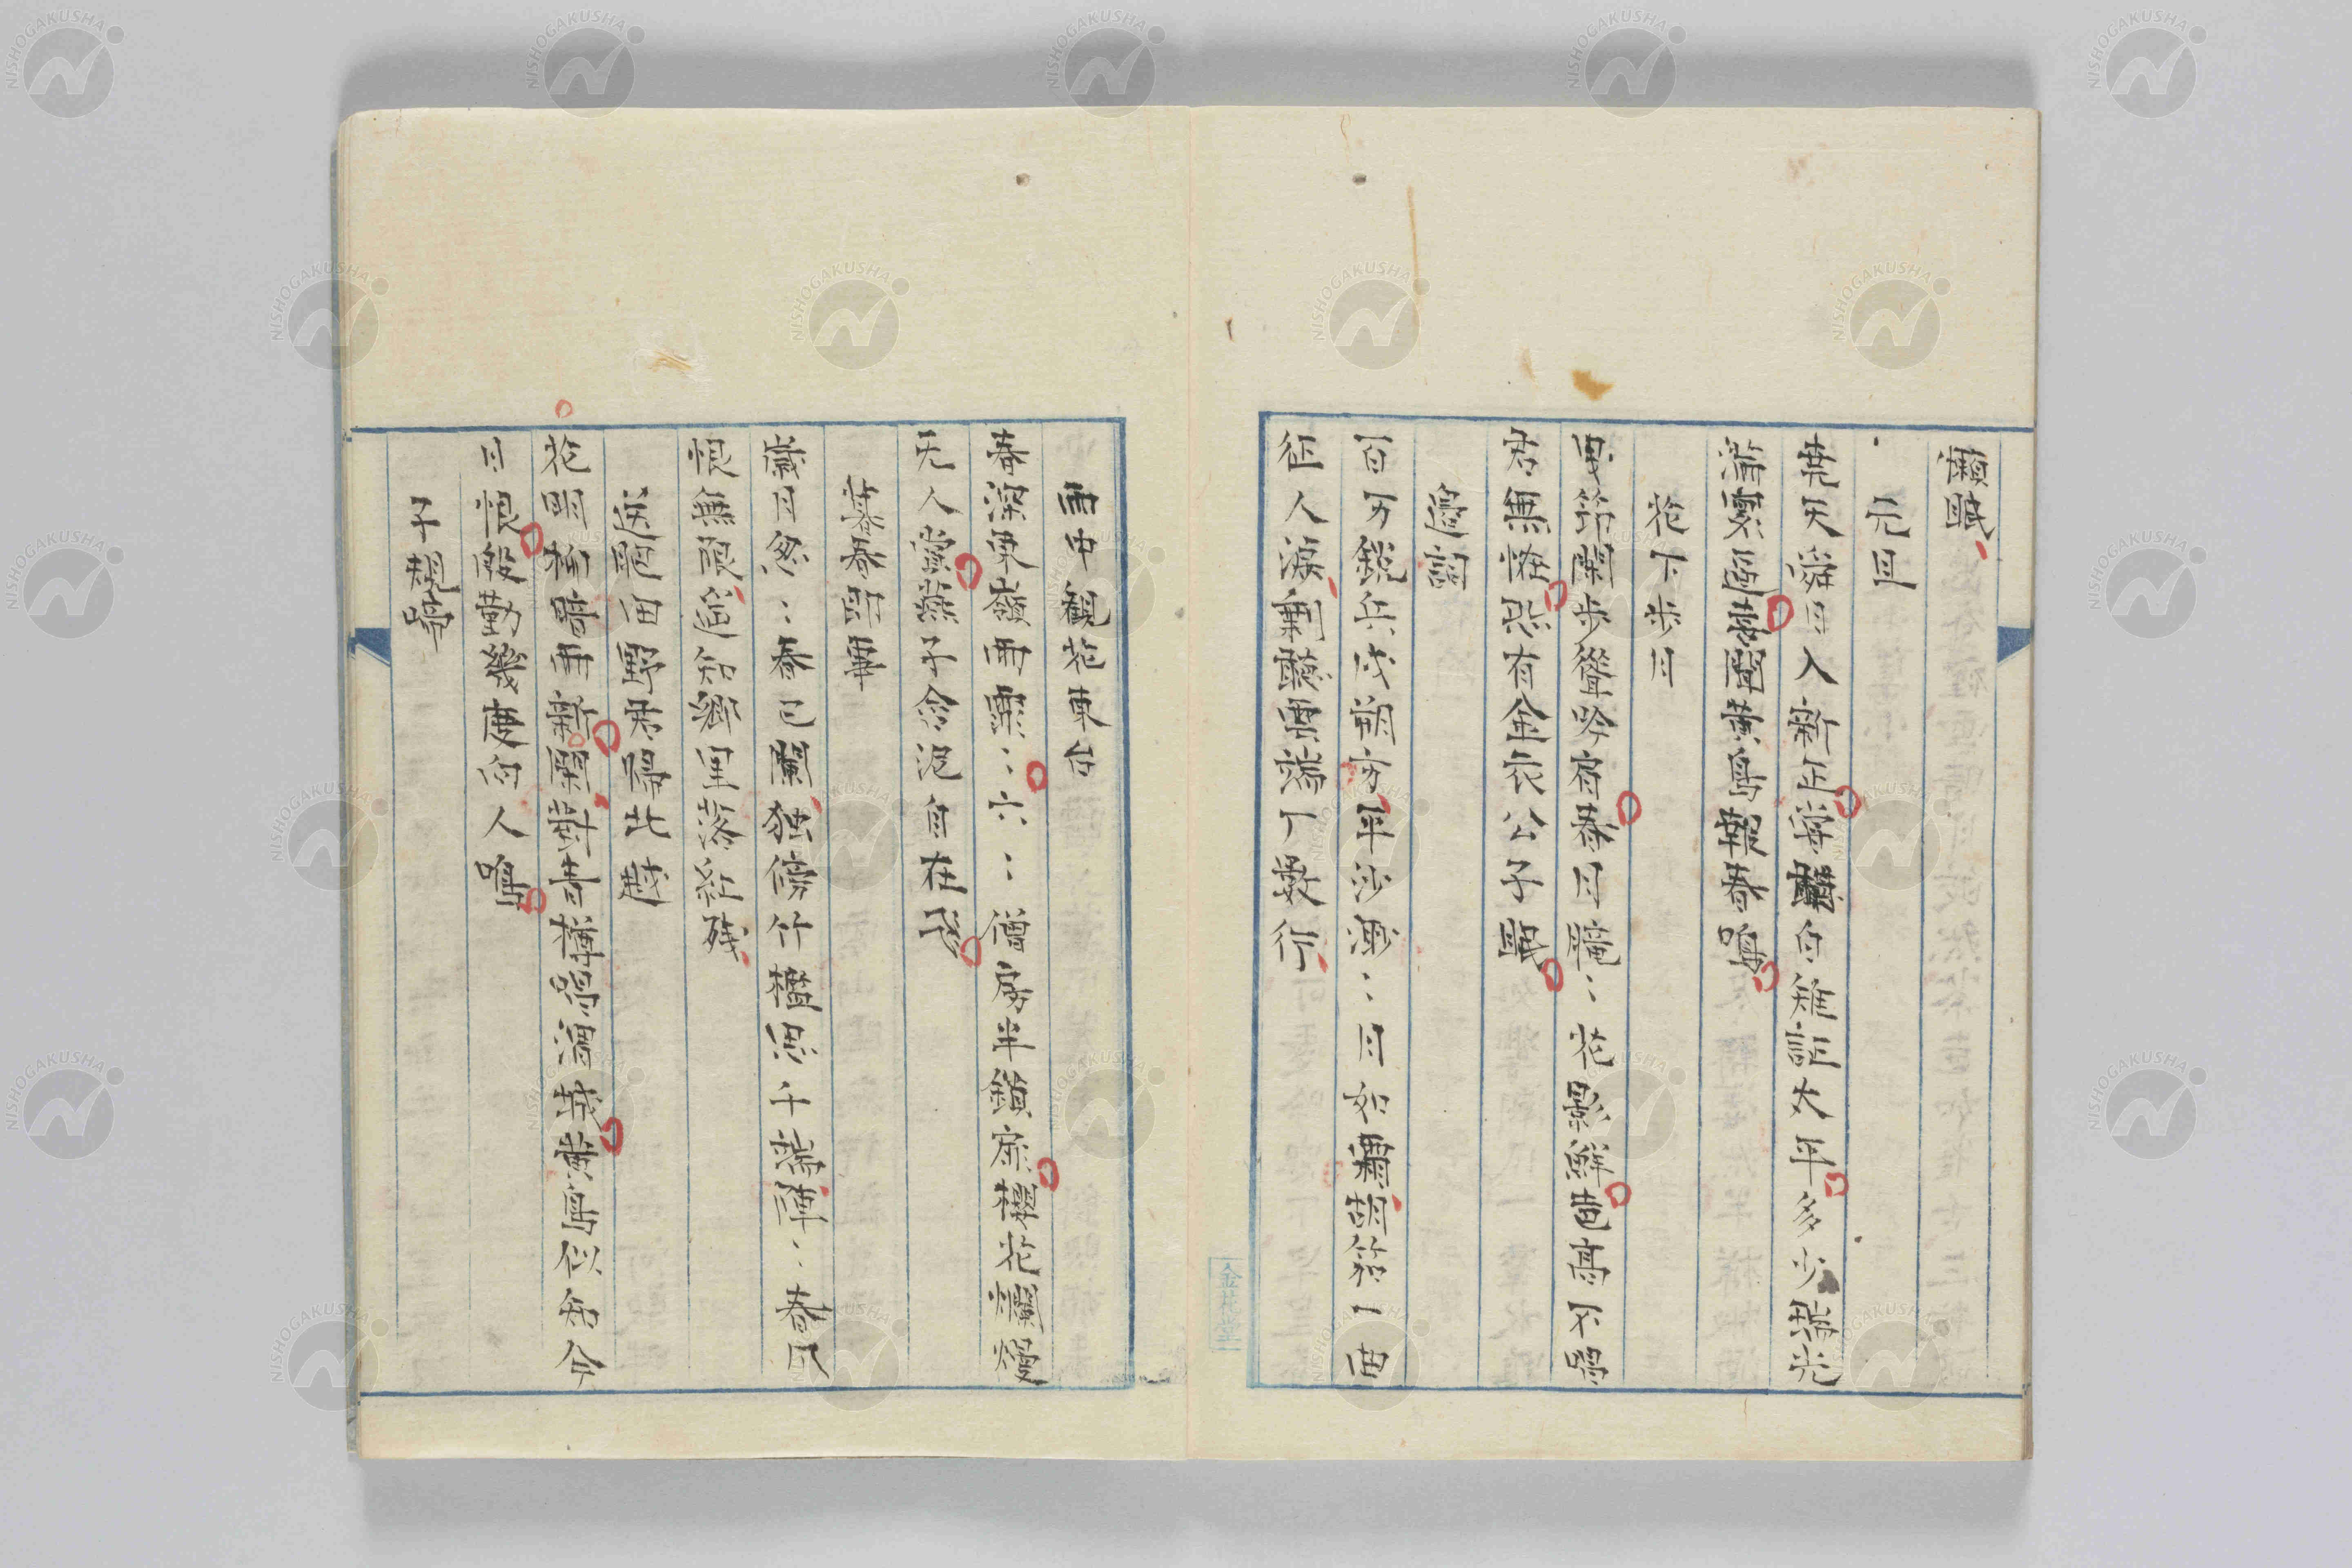 懶眠
元旦
堯天舜日入新正学講白雉証太平多少瑞光
滿寰區夢闌黄鳥報春鳴
花下步月
曳笻閑步聳吟肩春月朧々花影鮮喜不帰
君無怪有金衣公子眠
邊詞
百万鋭兵戍朔方平沙渺々月如霜胡笳一曲
征人涙剣戟叢端下数行
金花堂
雨中観花東台
春深東嶺雨濛々六々僧房半鎖櫻花爛熳
无人賞燕子含泥自在飛
暮春即事
歳月怱々春已闌独傍竹檻思千端薄々春風
恨無限遥知郷里落紅残
送肥田野君帰北越
花明柳暗雨新樽黄鳥似知今
日恨殷勤幾度向人鳴
子規啼
NISHOGAKUSHA